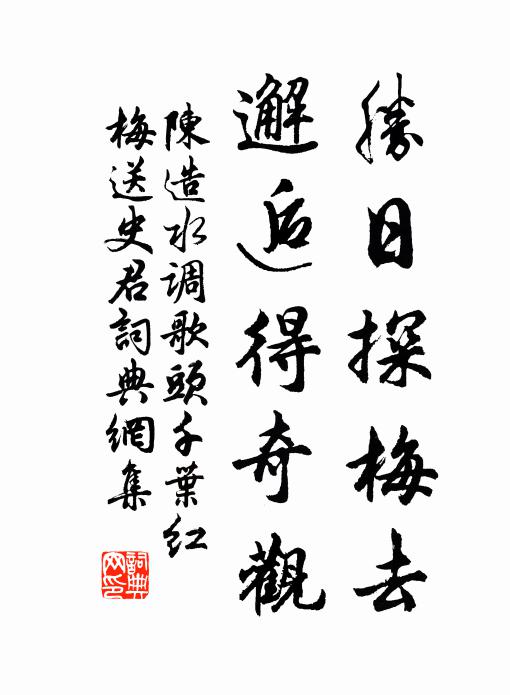 勝日探梅去
邂逅得奇觀
陳造水调歌頭千葉红
梅送史君詞典網集
詞典
网印